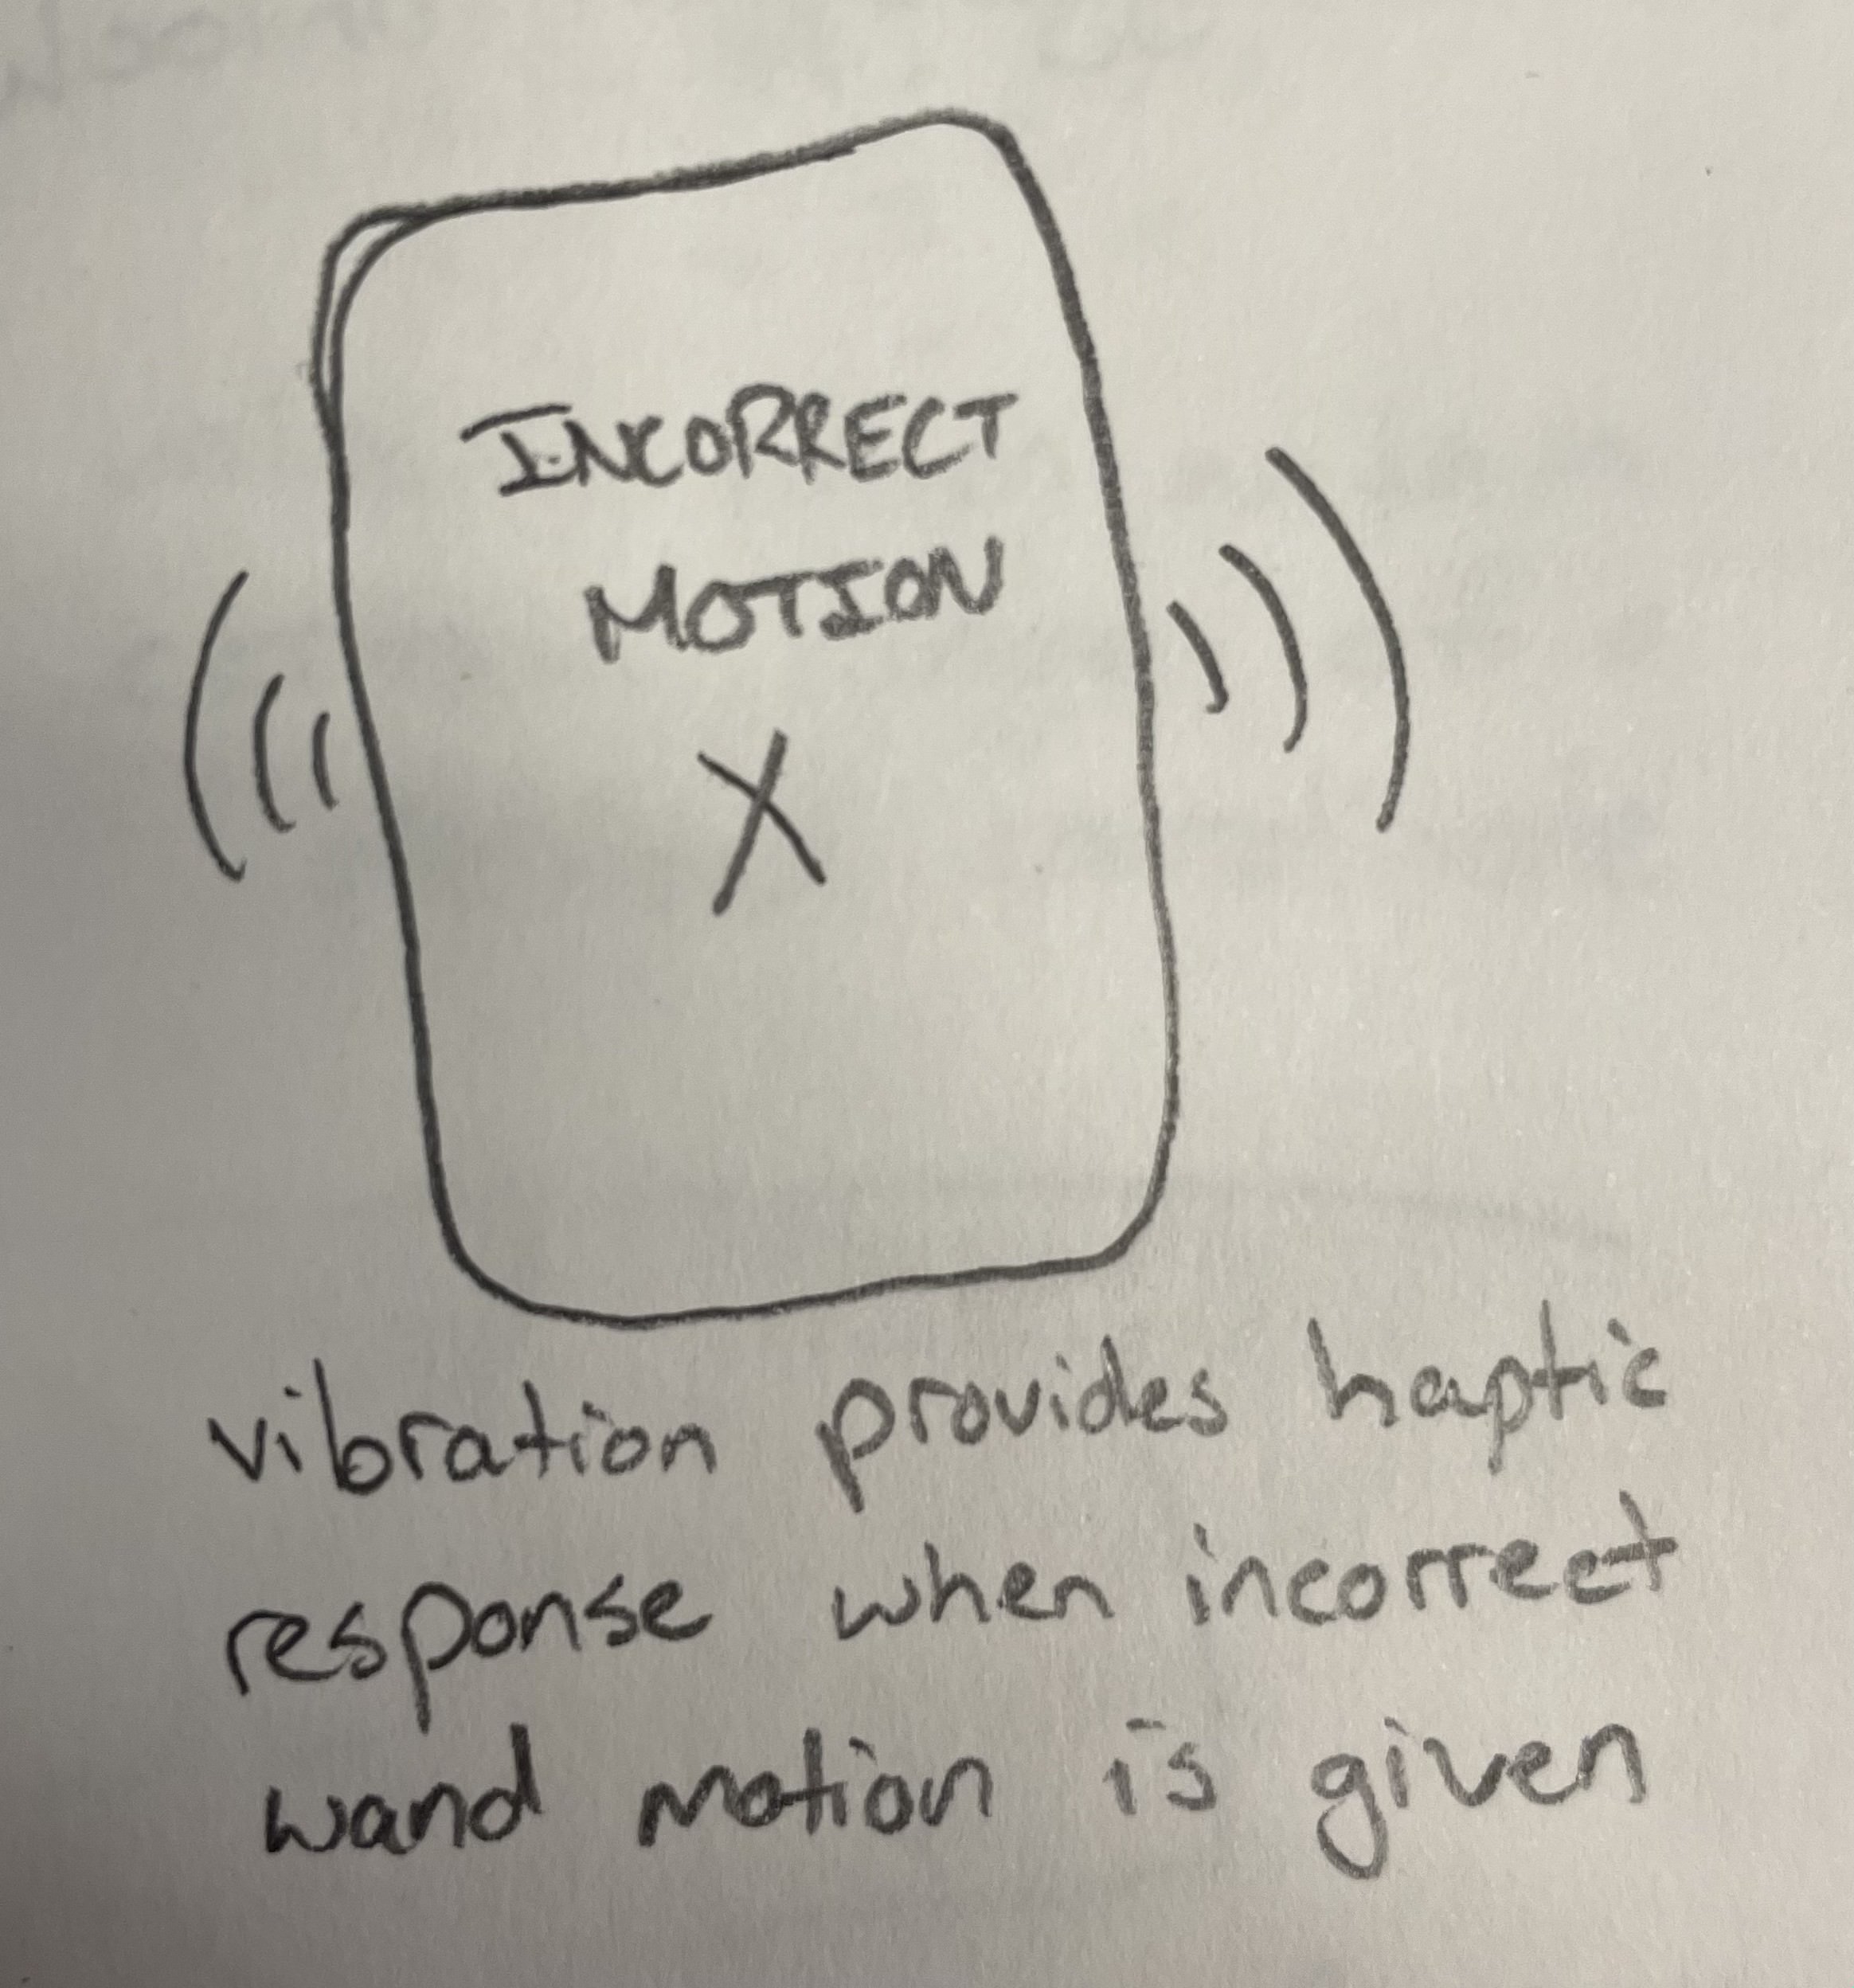 INCORRECT
MOTION
X
vibration provides haptic
response when incorrect
wand motion is given